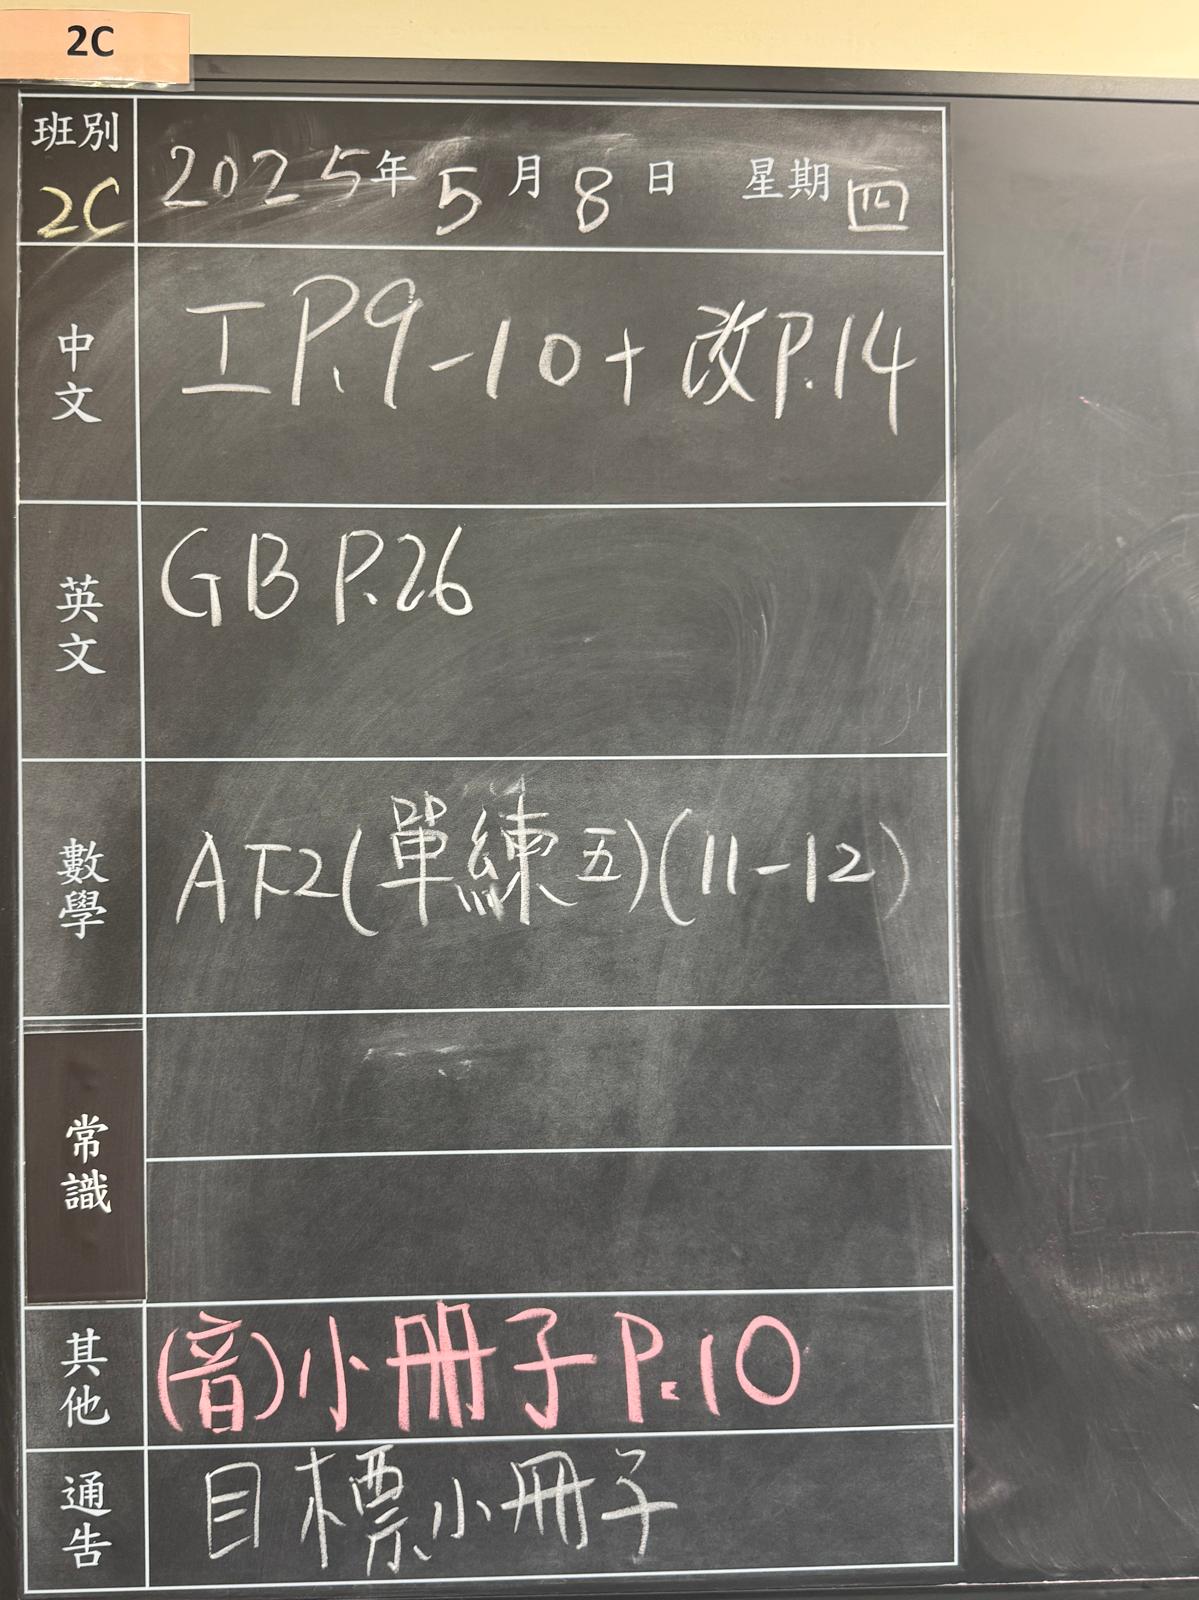 2C
班別 2C 2025年5月8日 星期四
中文 工P.9-10+改P.14
英文 GB P.26
數學 A下2(單練五)(11-12)
常識
其他 (音)小冊子P.10
通告 目標小冊子